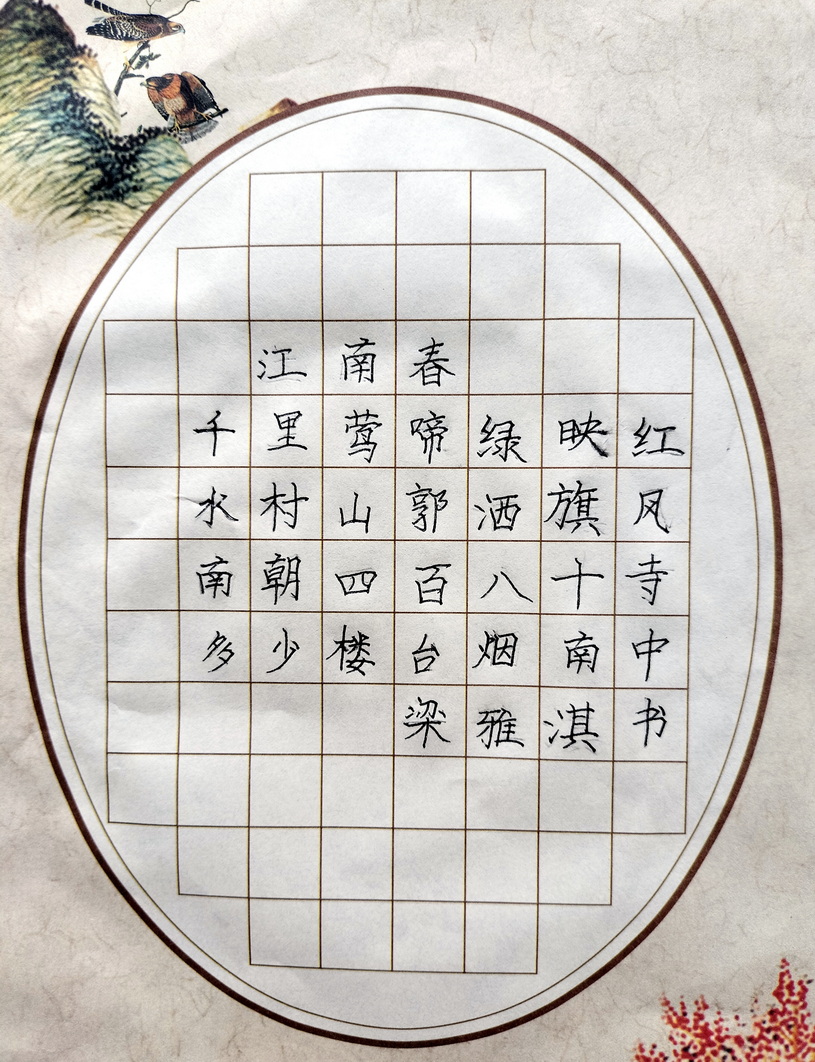 江南春
千里莺啼绿映红
水村山郭洒旗风
南朝四百八十寺
多少楼台烟南中
梁雅淇书